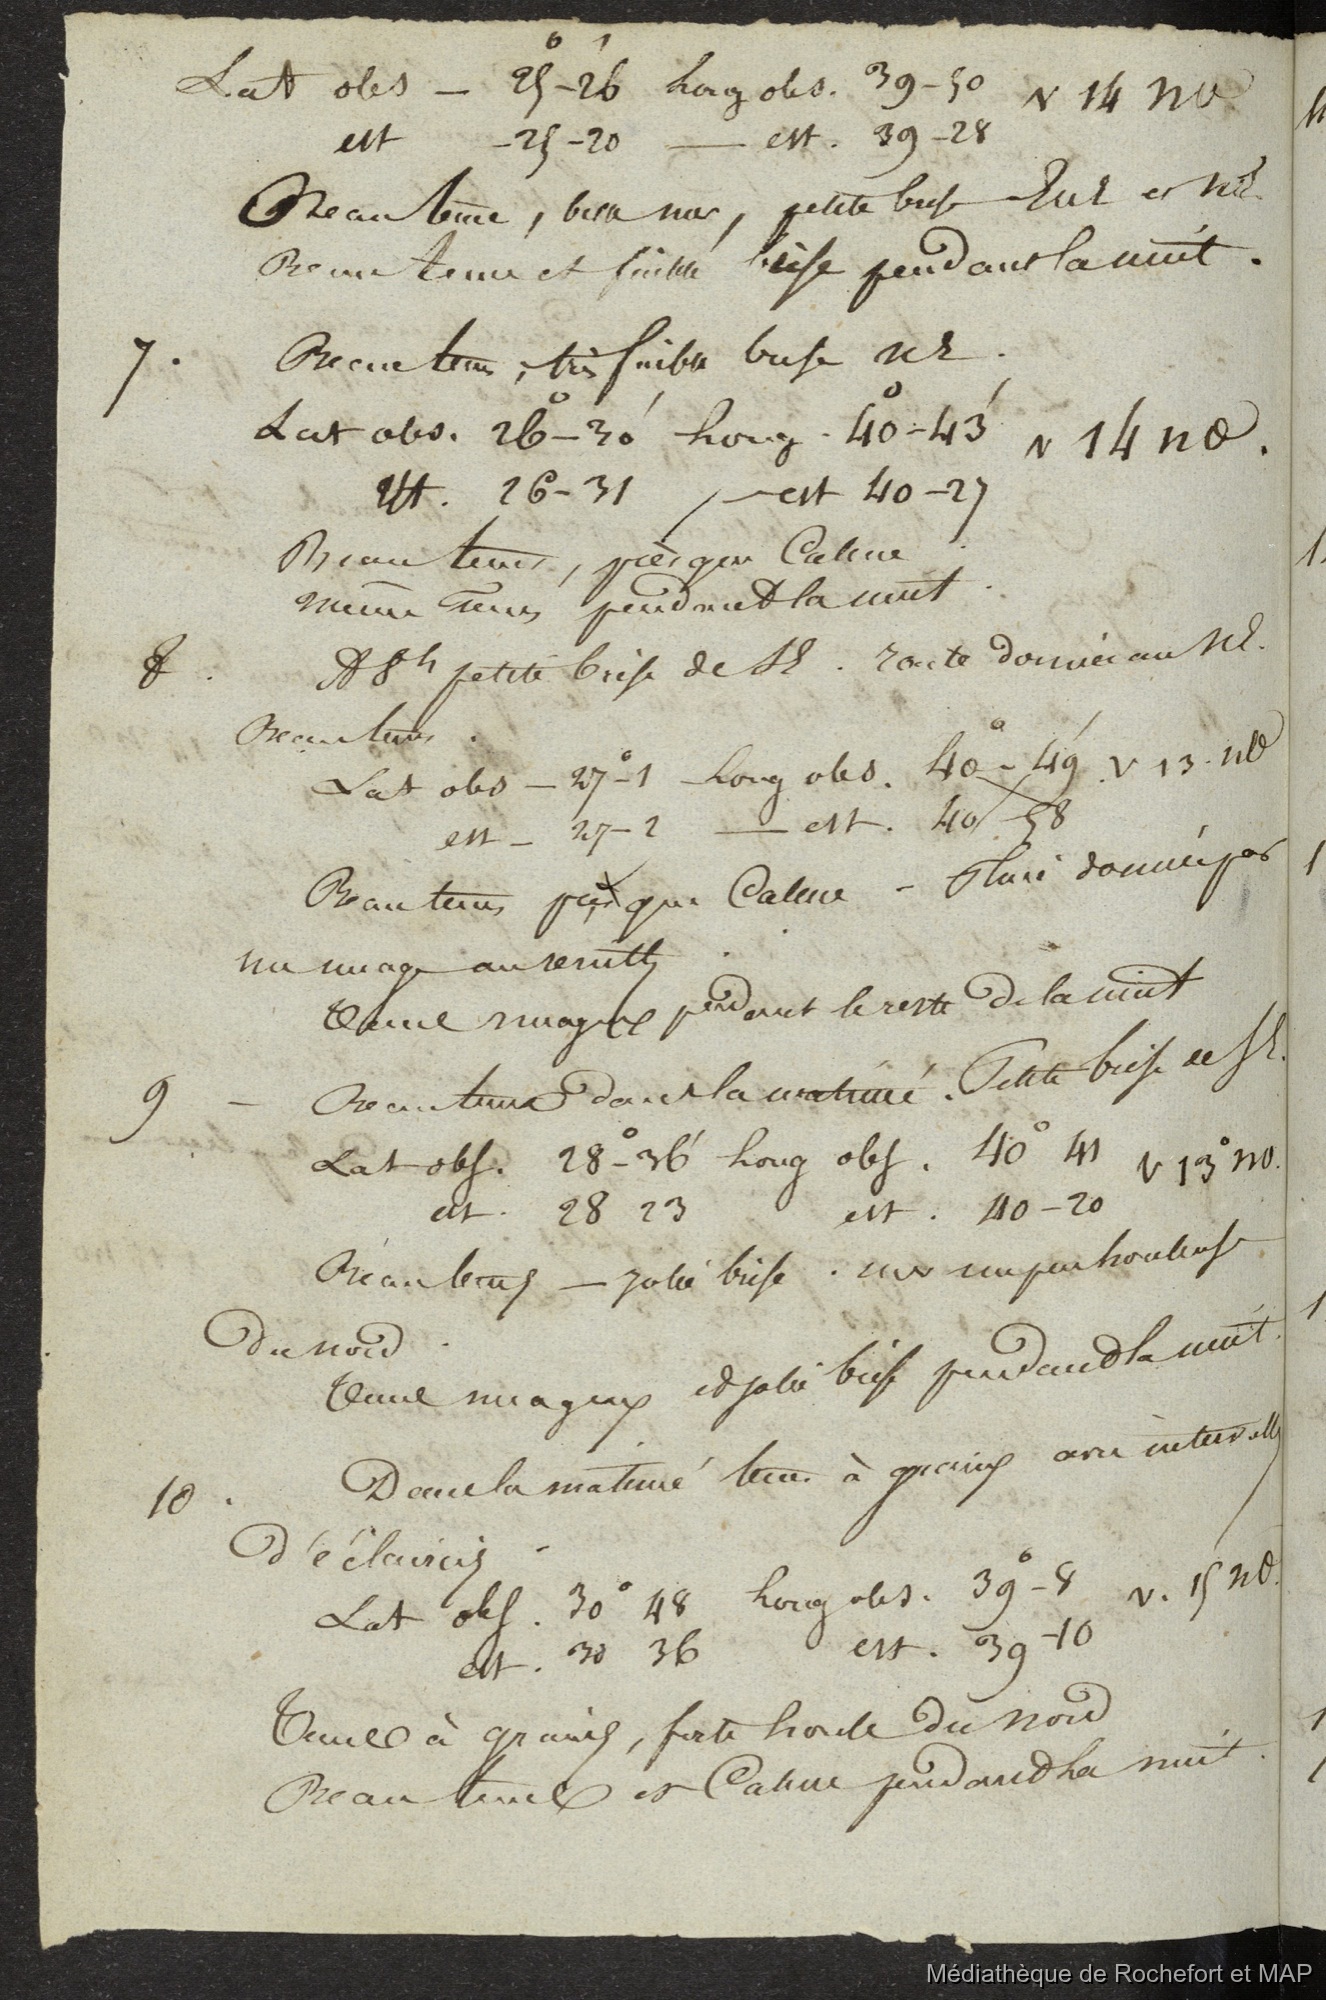 Lat obs – 25°-26' Long obs. 39-50 v 14 no
est -25-20 — est. 39-28
Beau tems, belle mer, petite brise Ene et ne
Beau tems et faible brise pendant la nuit.
7. Beau tems, très faible brise ne.
Lat obs. 26°-30' Long. 40°-43' v 14 no.
est. 26-31 — est 40-27
Beau tems, presque Calme
même tems pendant la nuit.
8. A 8h petite brise de SE. route donnée au NE.
Beau tems.
Lat obs – 27°-1 Long obs. 40°-49' v 13. no
est – 27-2 — est. 40-58
Beau tems presque Calme – Pluie donnée par
un nuage au
Tems nuageux pendant le reste de la nuit
9 – Beau tems dans la matinée. Petite brise de SE.
Lat obs. 28°-36' Long obs. 40° 41 v 13° no.
est. 28 23 est. 40-20
Beau tems – jolie brise. mer un peu houleuse
du nord.
Tems nuageux et jolie brise pendant la nuit.
10. Dans la matinée tems à grains avec intervalles
d'éclaircies.
Lat obs. 30° 48 Long obs. 39°-8 v. 15 no.
est. 30 36 est. 39-10
Tems à grains, forte houle du nord
Beau tems et Calme pendant la nuit.
Médiathèque de Rochefort et MAP